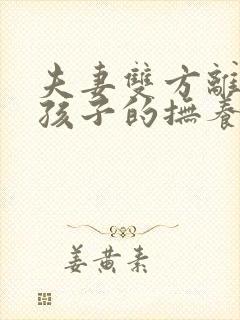 夫妻雙方離
孩子的撫養
姜黃素